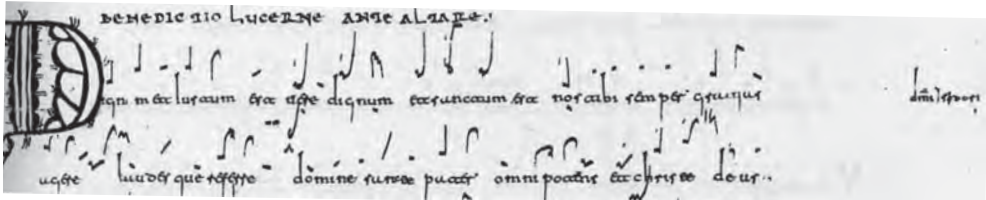 BENEDICTIO LUCERNE ANTE ALTARE:
Dignum et iustum est uere dignum et iustum est nos tibi semper gratias
agere laudesque referre domine sancte pater omnipotens et christe deus.